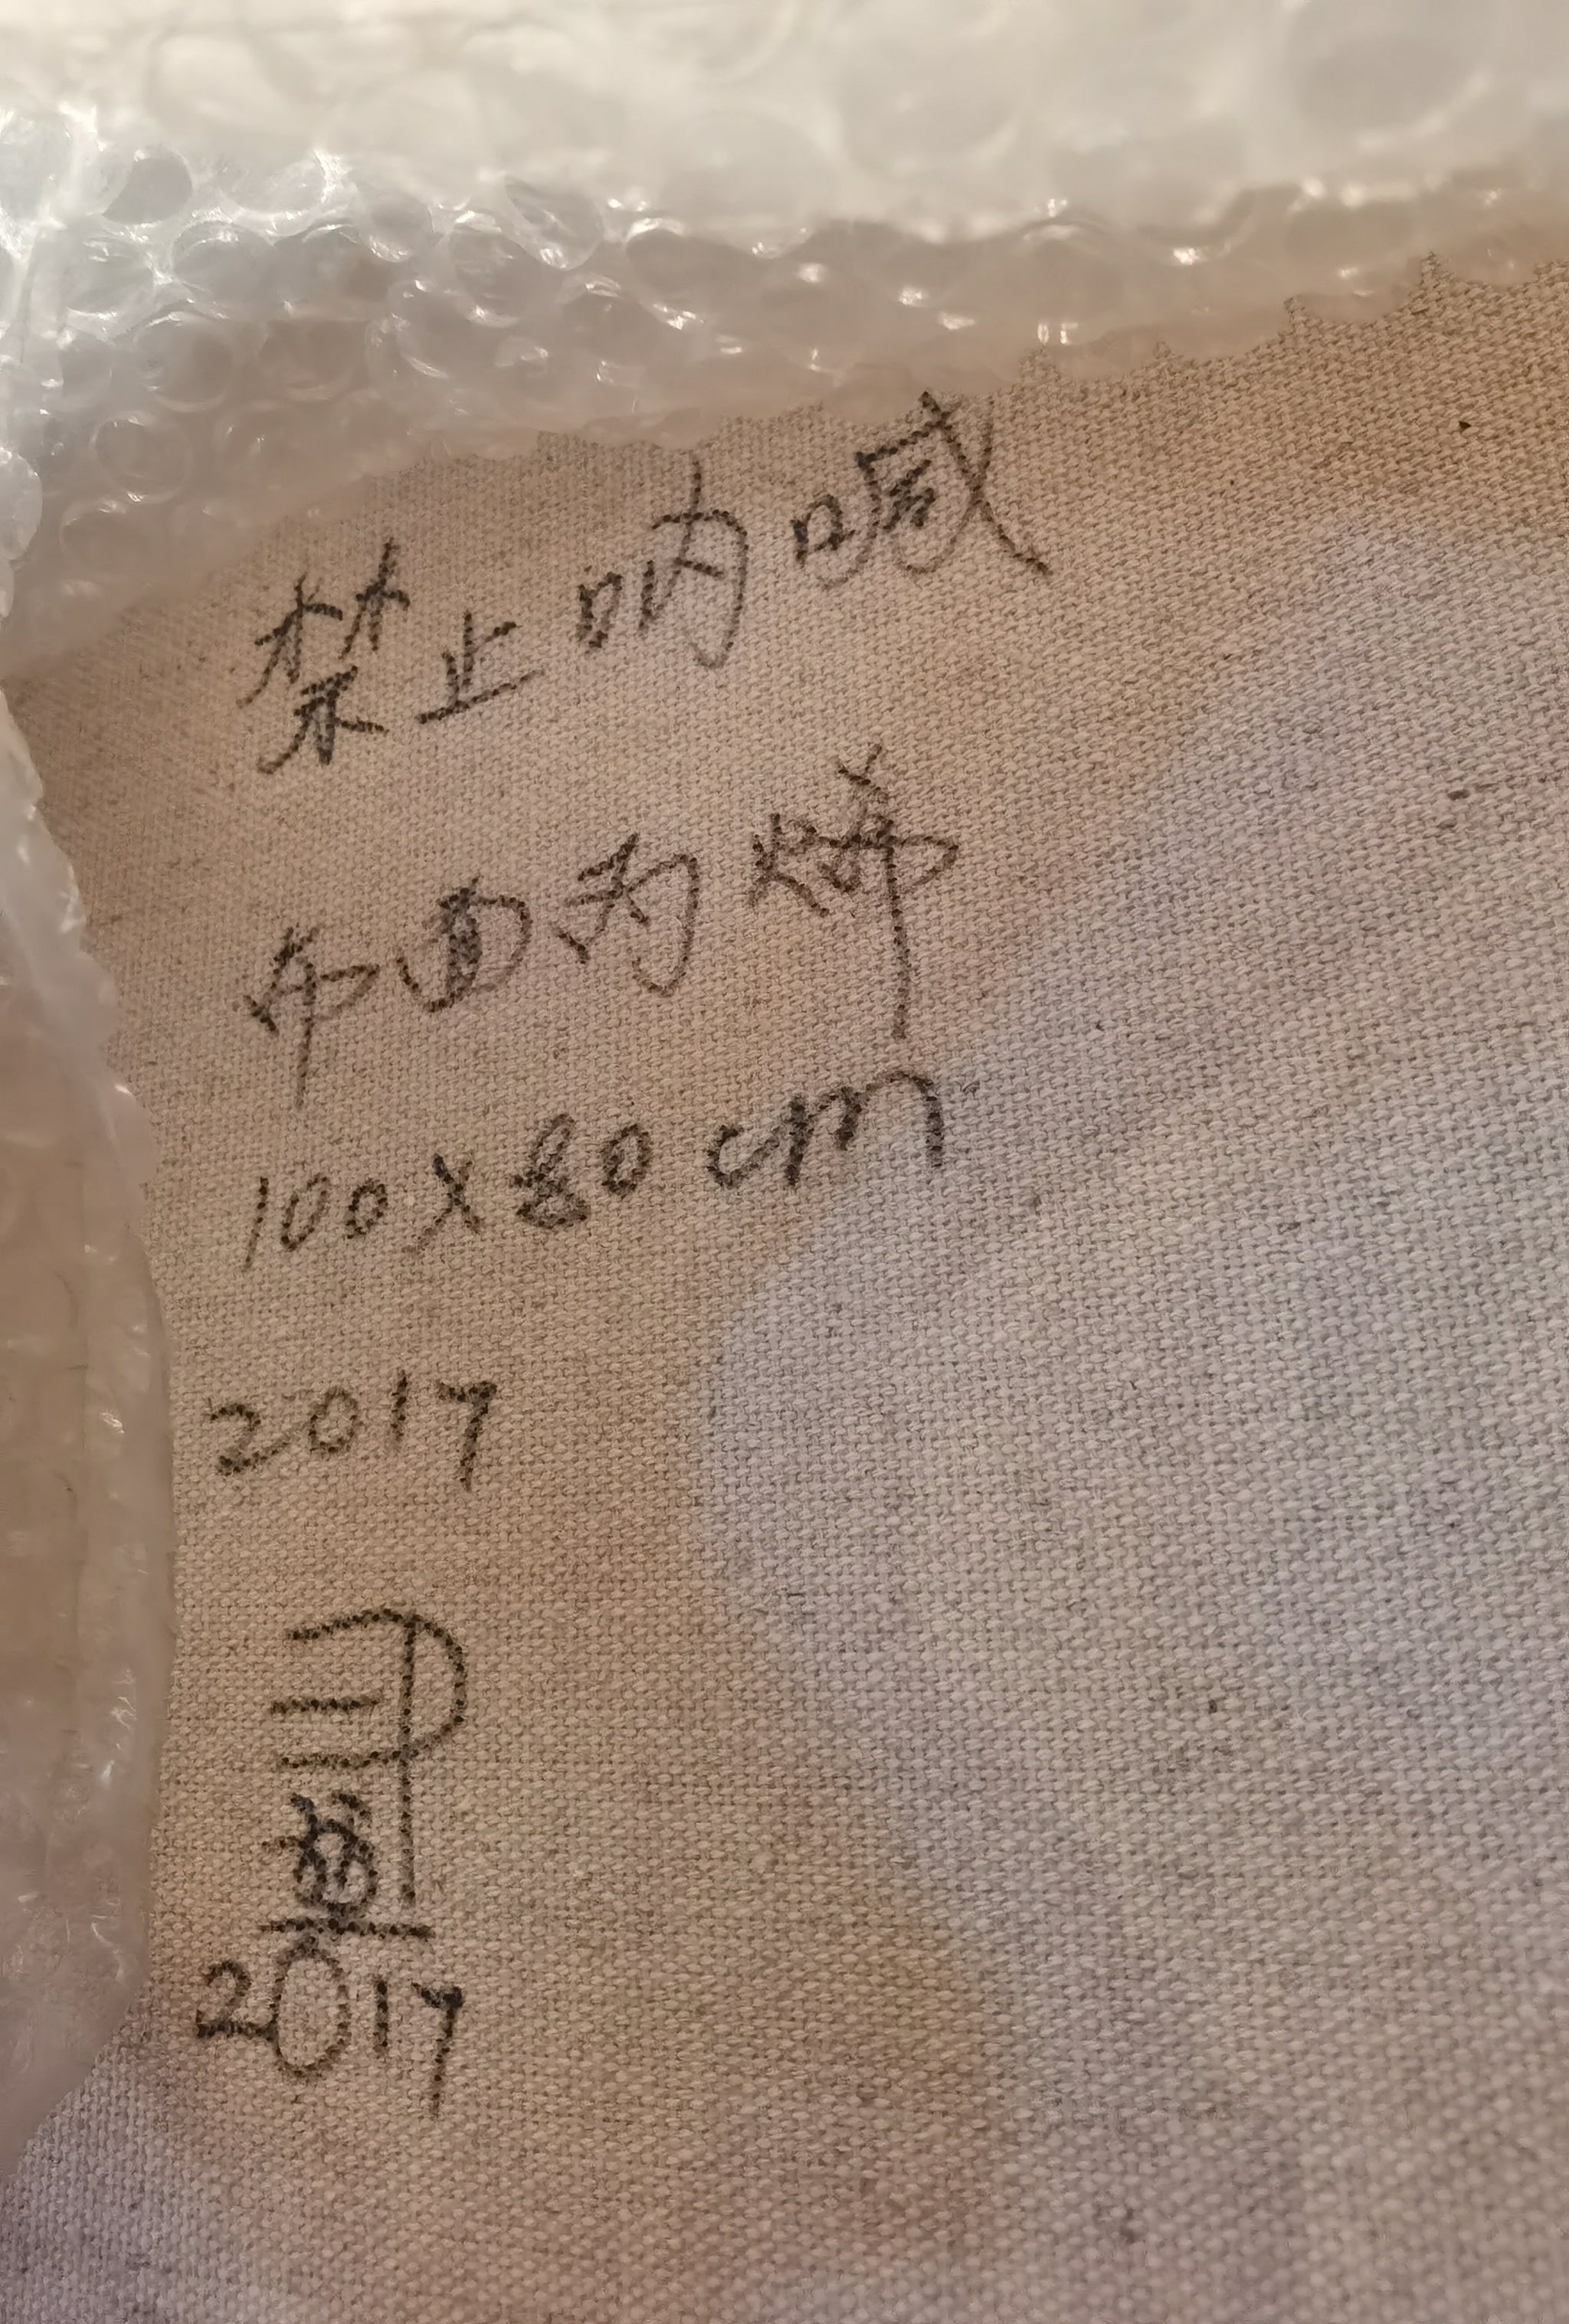 禁止呐喊
布面丙烯
100X80cm
2017
2017